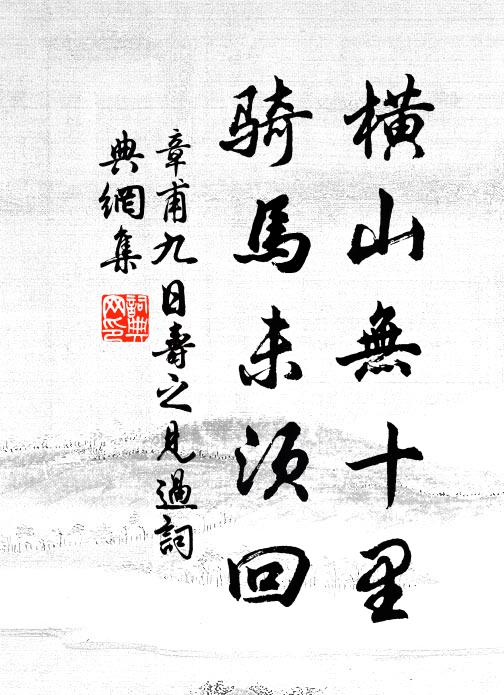 橫山無十里
騎馬未須回
章甫九日壽之見過詞
典網集
詞典
网印